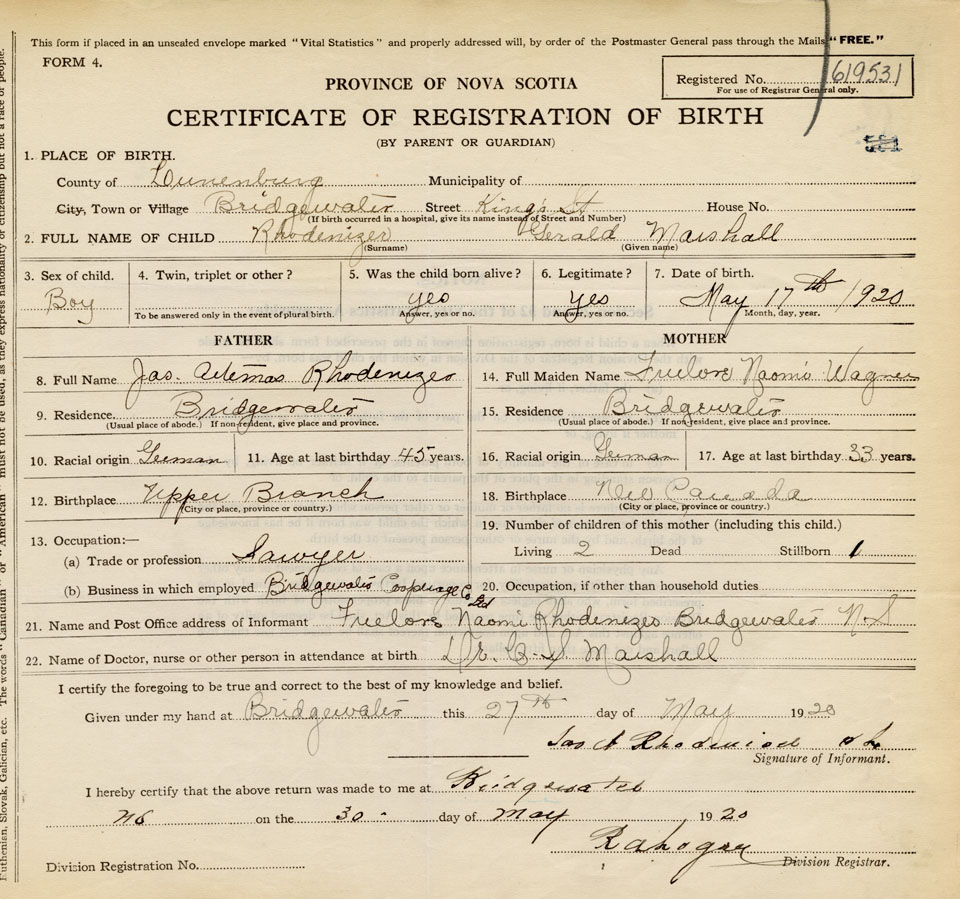 This form if placed in an unsealed envelope marked "Vital Statistics" and properly addressed will, by order of the Postmaster General pass through the Mails "FREE."
FORM 4.
Registered No. 619531
For use of Registrar General only.
PROVINCE OF NOVA SCOTIA
CERTIFICATE OF REGISTRATION OF BIRTH
(BY PARENT OR GUARDIAN)
1. PLACE OF BIRTH.
County of Lunenburg Municipality of
City, Town or Village Bridgewater Street King's St House No.
(If birth occurred in a hospital, give its name instead of Street and Number)
2. FULL NAME OF CHILD Rhodenizer Gerald Marshall
(Surname) (Given name)
3. Sex of child. 4. Twin, triplet or other? 5. Was the child born alive? 6. Legitimate? 7. Date of birth.
Boy yes yes May 17th 1920
To be answered only in the event of plural birth. Answer, yes or no. Answer, yes or no. Month, day, year.
FATHER MOTHER
8. Full Name Jas. Artemas Rhodenizer 14. Full Maiden Name Freelove Naomi Wagner
9. Residence. Bridgewater 15. Residence Bridgewater
(Usual place of abode.) If non-resident, give place and province. (Usual place of abode.) If non-resident, give place and province.
10. Racial origin German 11. Age at last birthday 45 years. 16. Racial origin German 17. Age at last birthday 33 years.
12. Birthplace Upper Branch 18. Birthplace New Canada
(City or place, province or country.) (City or place, province or country.)
19. Number of children of this mother (including this child.)
13. Occupation:—
(a) Trade or profession Sawyer Living 2 Dead Stillborn 1
(b) Business in which employed Bridgewater Cooperage Co Ltd 20. Occupation, if other than household duties
21. Name and Post Office address of Informant Freelove Naomi Rhodenizer Bridgewater N.S
22. Name of Doctor, nurse or other person in attendance at birth Dr. C. S Marshall
I certify the foregoing to be true and correct to the best of my knowledge and belief.
Given under my hand at Bridgewater this 27th day of May 1920
Jas A Rhodeniser
Signature of Informant.
I hereby certify that the above return was made to me at Bridgewater
NS on the 30 day of May 1920
Division Registrar.
Division Registration No.